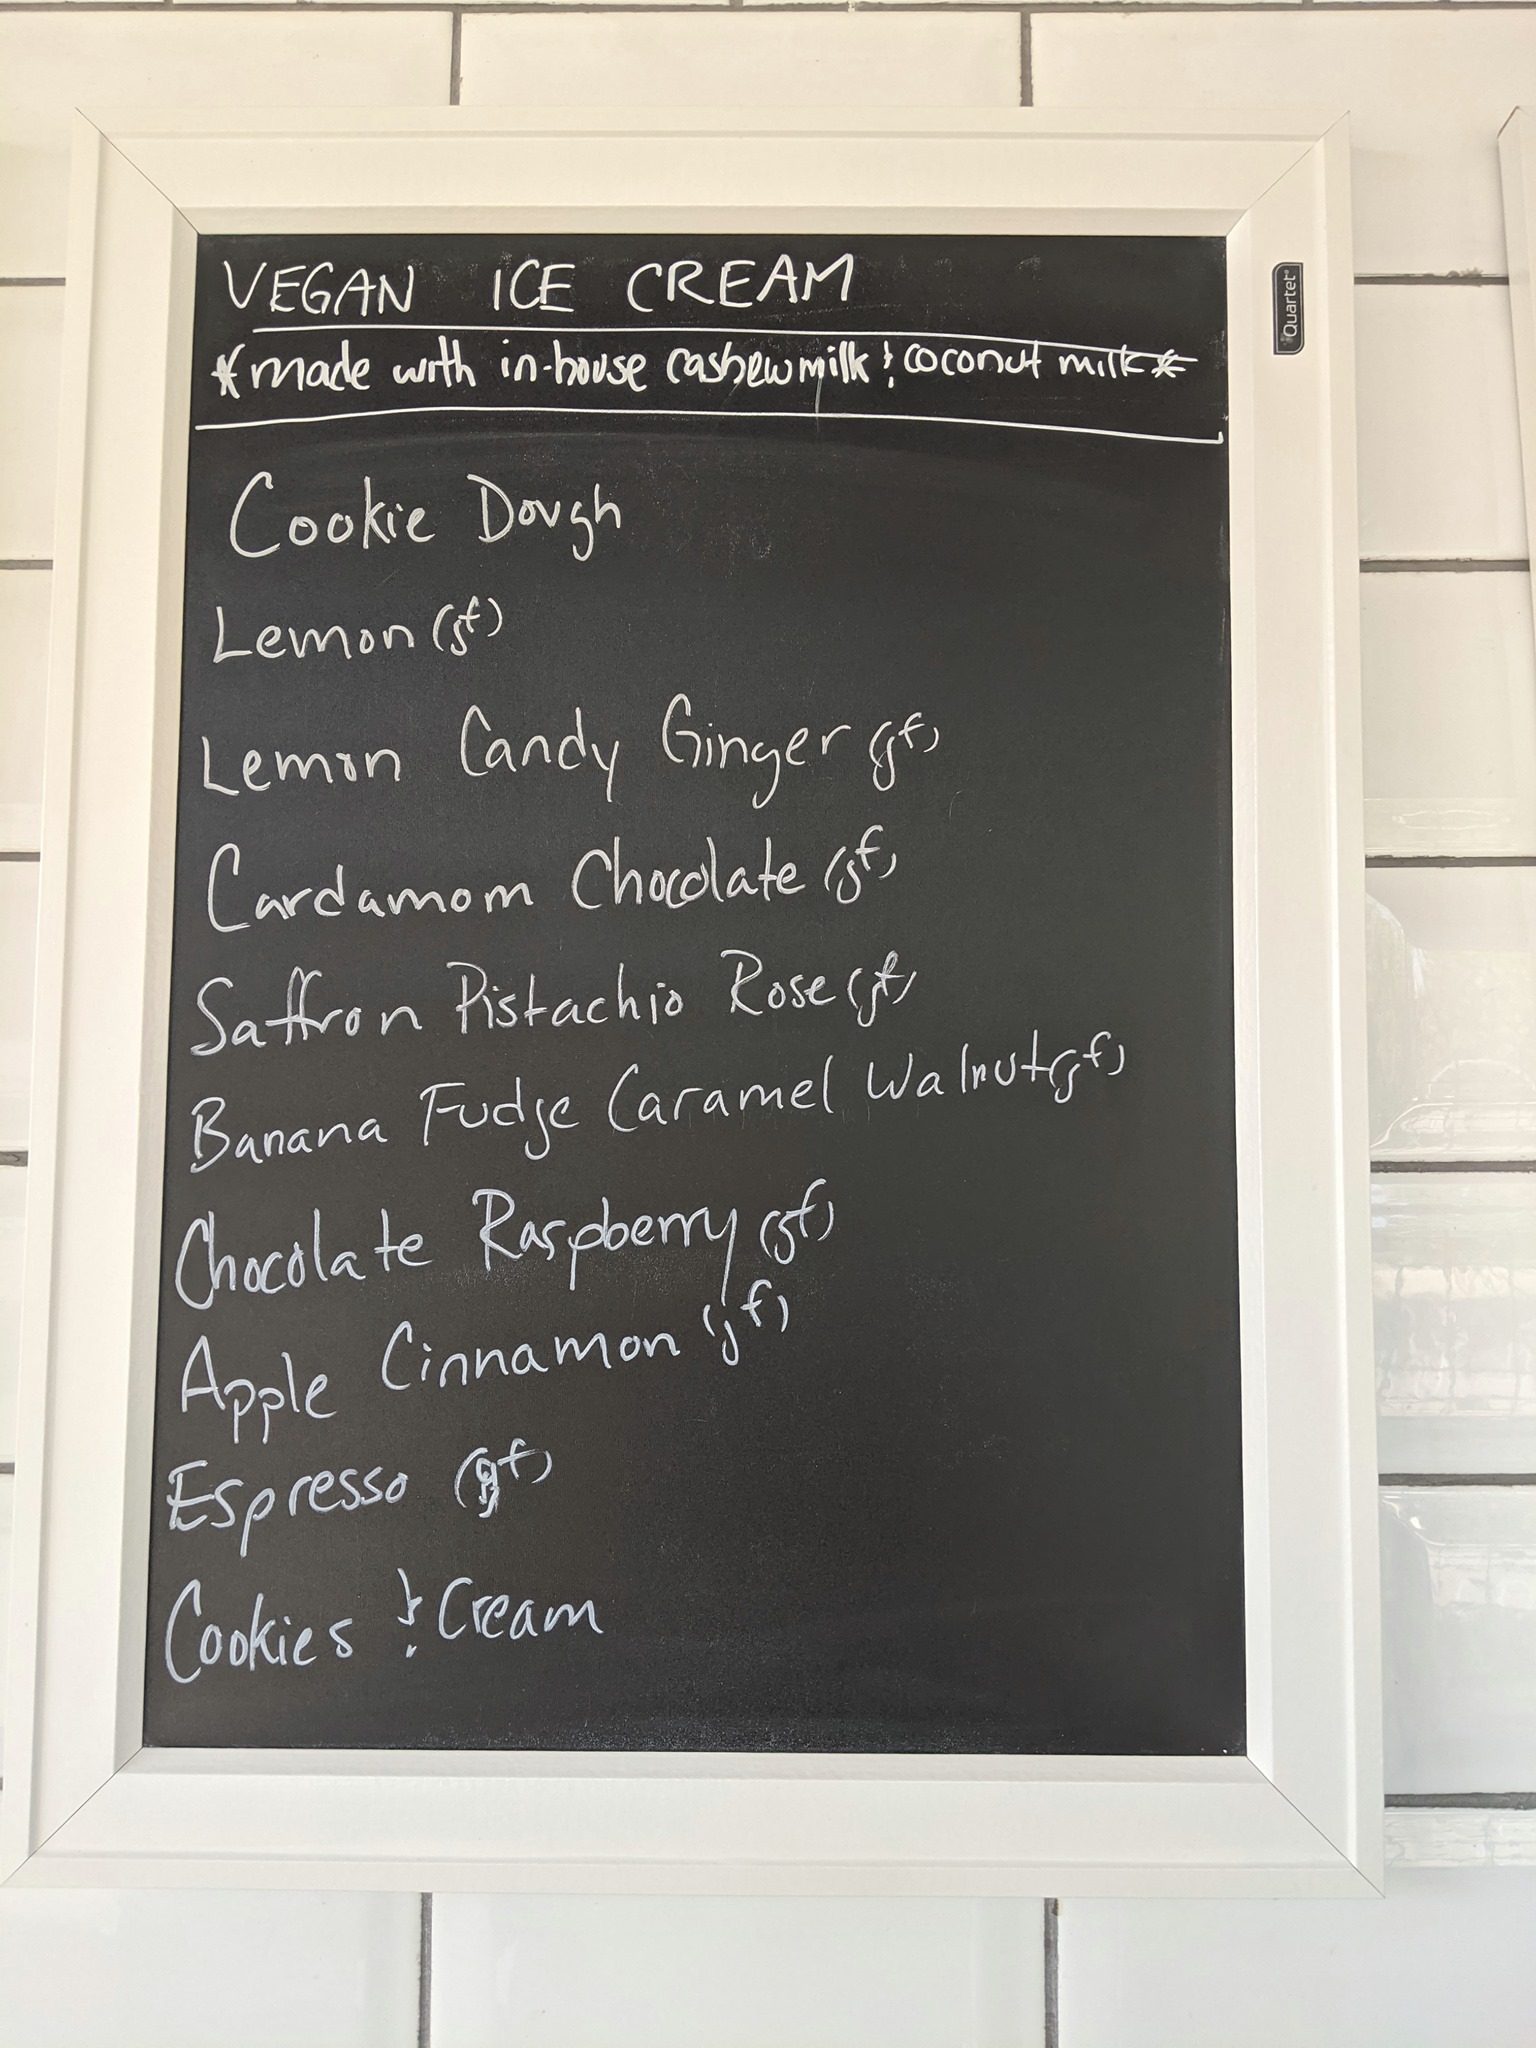 VEGAN ICE CREAM
*made with in-house cashewmilk & coconut milk*
Quartet
Cookie Dough
Lemon (gf)
Lemon Candy Ginger (gf)
Cardamom Chocolate (gf)
Saffron Pistachio Rose (gf)
Banana Fudge Caramel Walnut (gf)
Chocolate Raspberry (gf)
Apple Cinnamon (gf)
Espresso (gf)
Cookies & Cream